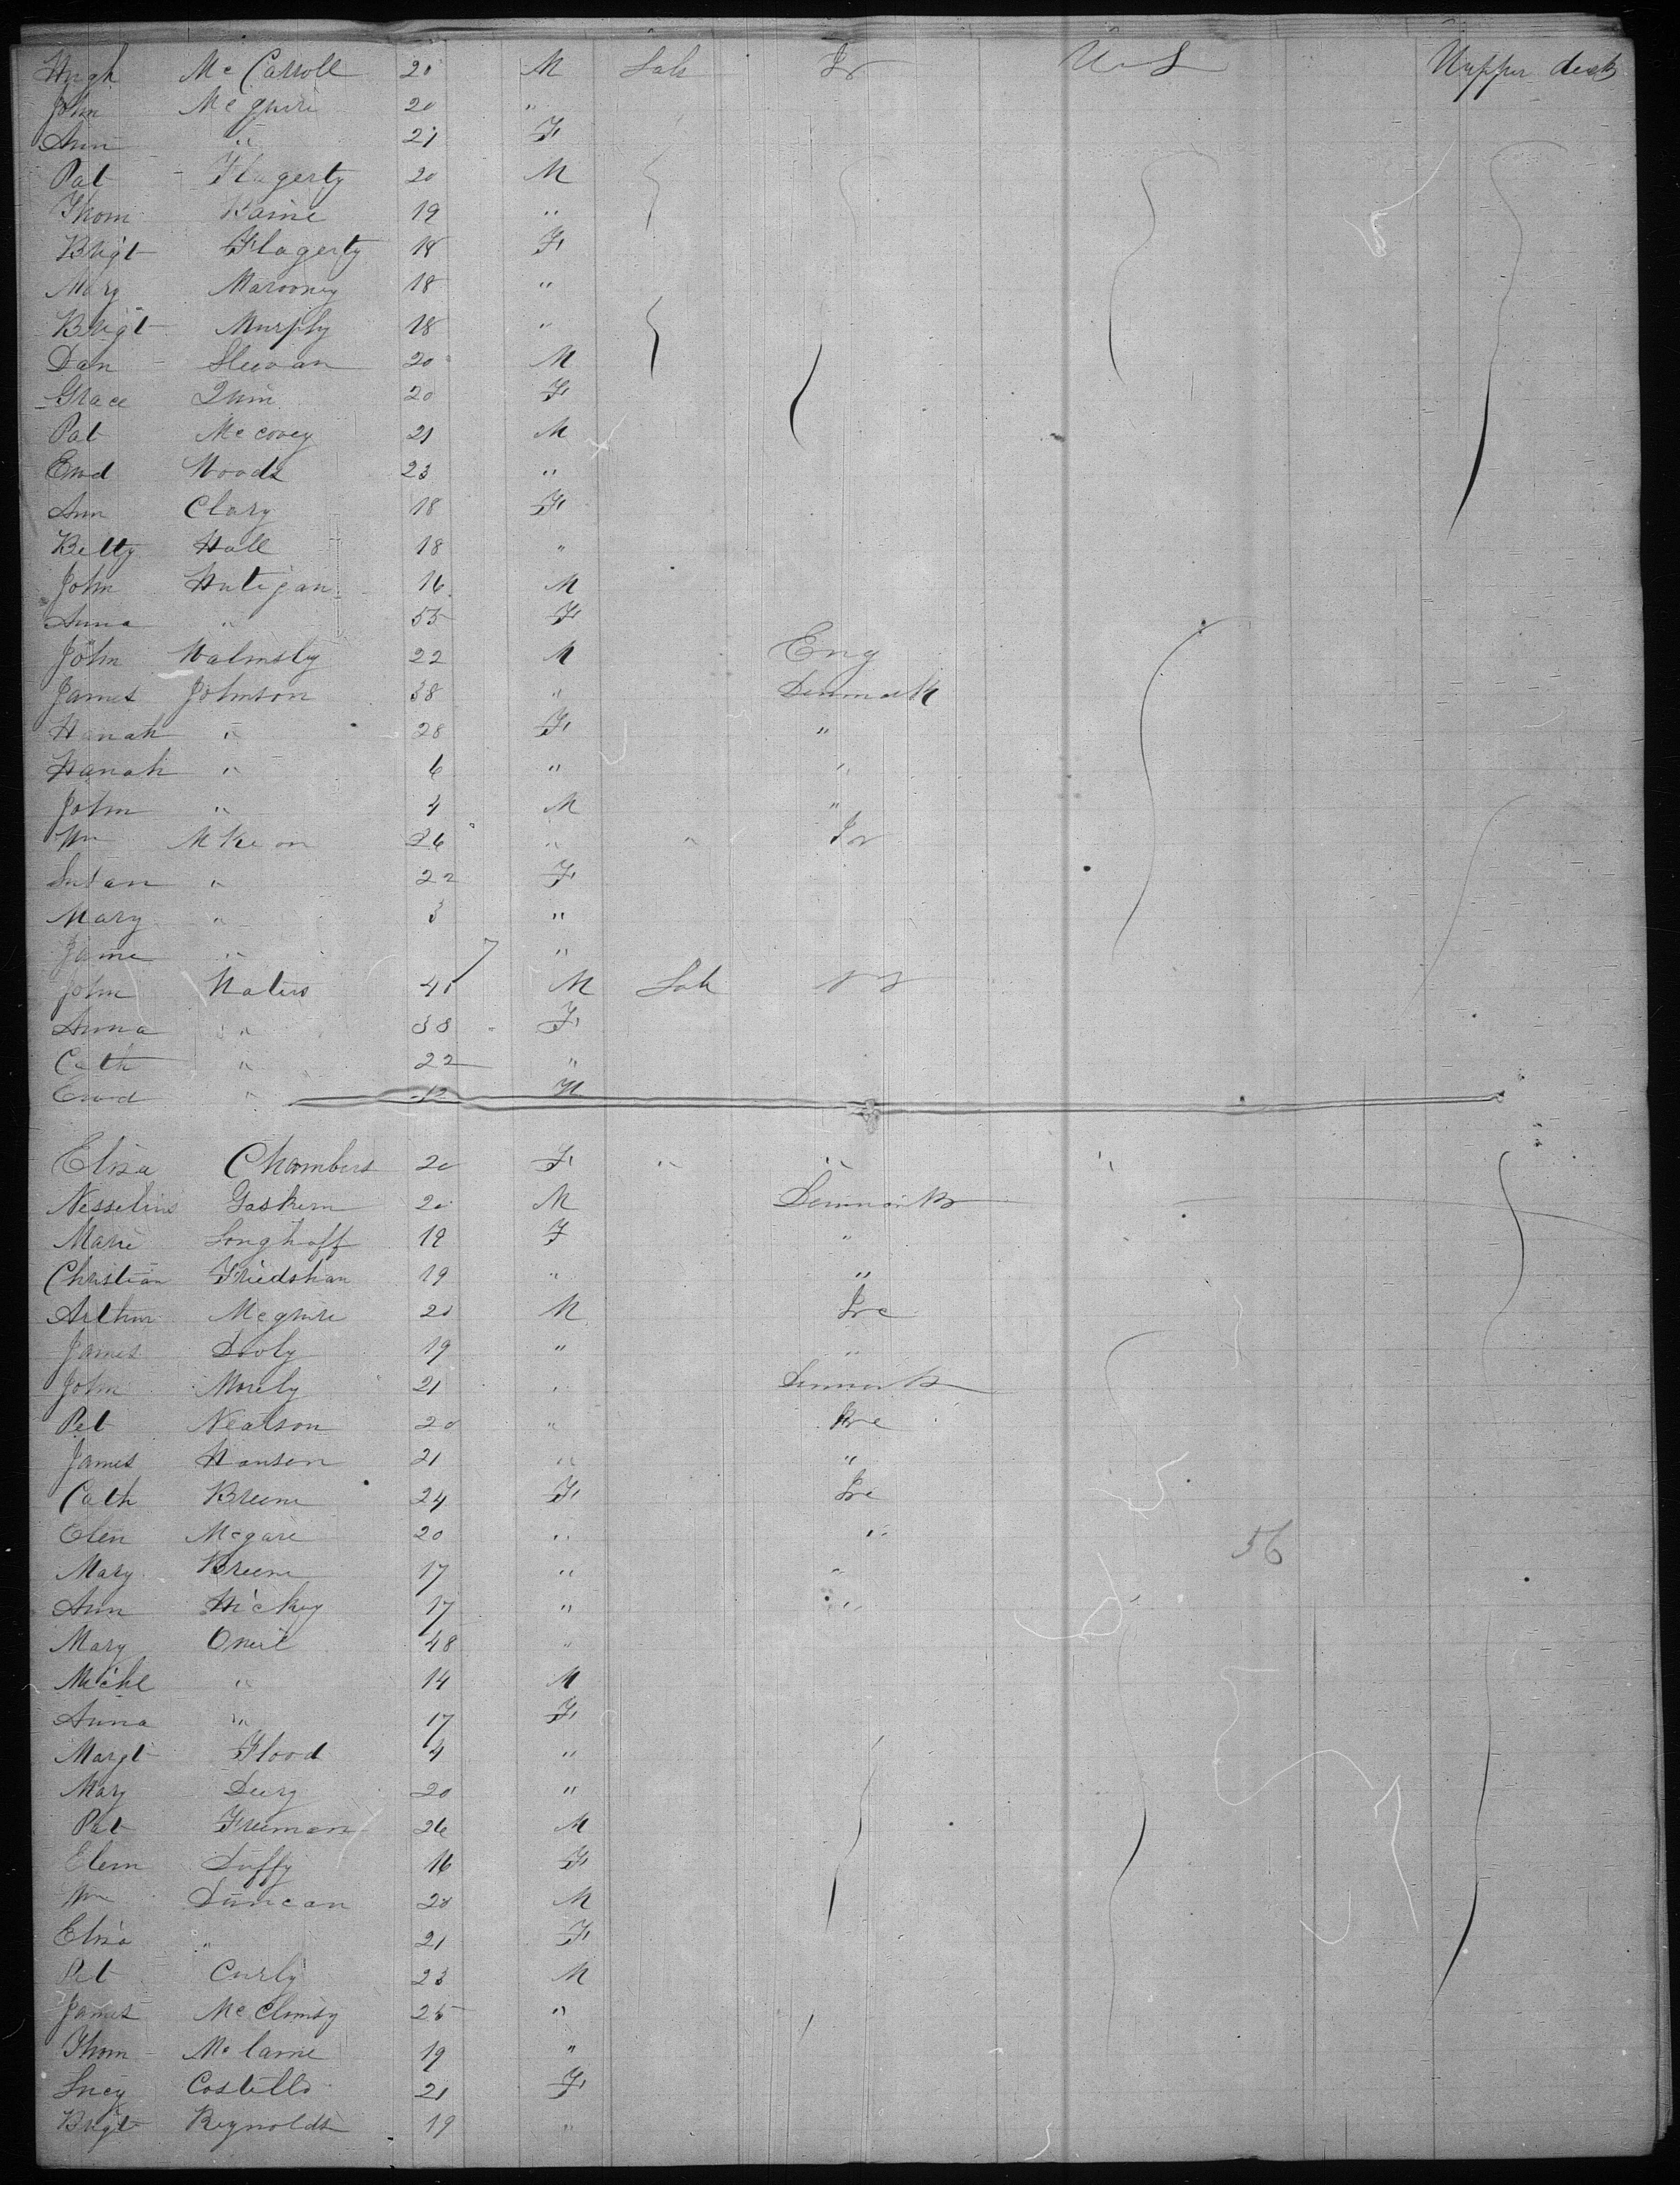 Hugh Mc Carroll 20 M Lab Ir U S Upper deck
John Mc guire 20 "
Ann " 21 F
Pat Flagerty 20 M
Thom Baine 19 "
Brigt Flagerty 18 F
Mary Marooney 18 "
Brigt Murphy 18 "
Dan Slewan 20 M
Grace Quin 20 F
Pat Mc covey 21 M
Ewd Woods 23 "
Ann Clary 18 F
Betty Hall 18 "
John Hutigan 16 M
Anna " 55 F
John Walmsly 22 M Eng
James Johnson 38 " Denmark
Hanah " 28 F "
Hanah " 6 " "
John " 4 M "
Wm M Keon 26 " " Ir
Susan " 22 F
Mary " 3 "
Jame " "
John Waters 41 M Lab
Anna " 38 F
Cath " 22 "
Ewd " 12 M
Eliza Chambers 20 F " " "
Nesselins Gaskem 20 M Denmark
Marie Longhoff 19 F "
Christian Friedshan 19 " "
Arthur Mcguire 20 M Ire
James Dooly 19 " "
John Morely 21 " Denmark
Pet Neatson 20 " Ire
James Hanson 21 " "
Cath Breene 24 F Ire
Elen Mcgare 20 " "
Mary Breene 17 " "
Ann Hickey 17 " "
Mary Oneil 48 "
Michl " 14 M
Anna " 17 F
Margt Flood 4 "
Mary Derry 20 "
Pat Freeman 26 M
Elem Duffy 16 F
Wm Duncan 20 M
Eliza " 21 F
Pet Curly 23 M
James Mc Climsy 25 "
Thom Mc Carne 19 "
Lucy Costello 21 F
Brigt Reynolds 19 "
56